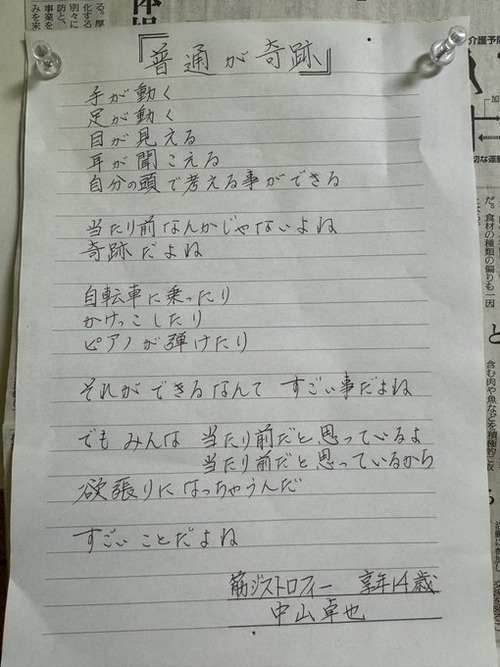 『普通が奇跡』
手が動く
足が動く
目が見える
耳が聞こえる
自分の頭で考える事ができる
当たり前なんかじゃないよね
奇跡だよね
自転車に乗ったり
かけっこしたり
ピアノが弾けたり
それができるなんて すごい事だよね
でも みんは 当たり前だと思っているよ
当たり前だと思っているから
欲張りになっちゃうんだ
すごい ことだよね
筋ジストロフィー 享年14歳
中山卓也
介護予
だ。食材の種類の偏りも一因
含む肉や魚などを積極的に